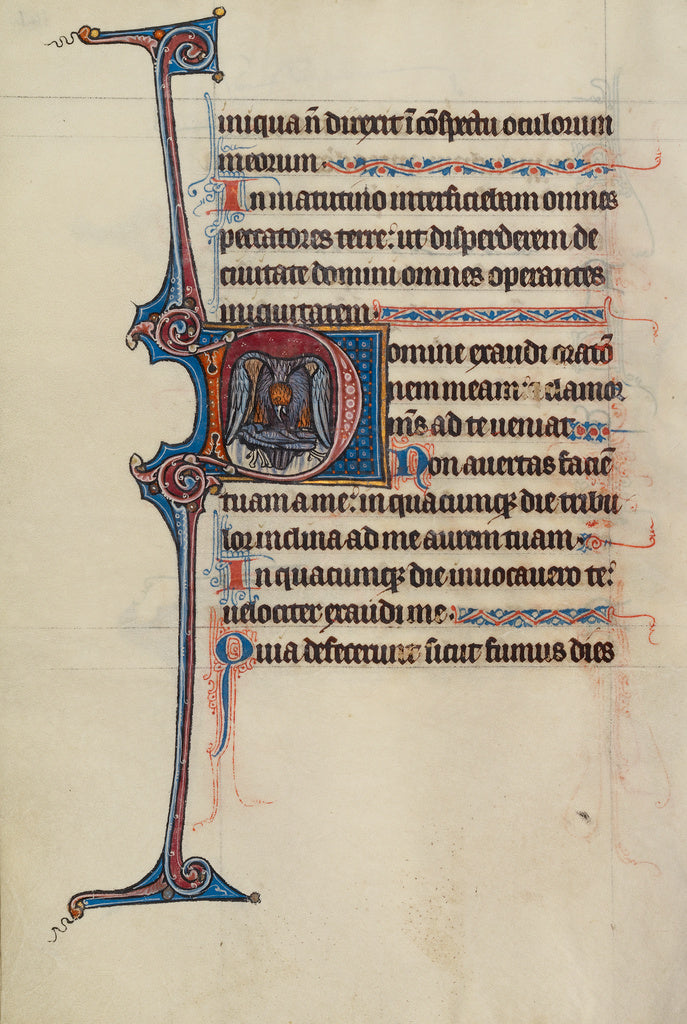 iniqua ñ direxit ĩ cõspectu oculorum
meorum.
In matutino interficiebam omnes
peccatores terre: ut disperderem de
ciuitate domini omnes operantes
iniquitatem.
Domine exaudi oratõ
nem meam: & clamor
m̃s ad te ueniat.
Non auertas faciẽ
tuam a me: in quacumqꝫ die tribu
lor inclina ad me aurem tuam.
In quacumqꝫ die inuocauero te:
uelociter exaudi me.
Quia defecerunt sicut fumus dies